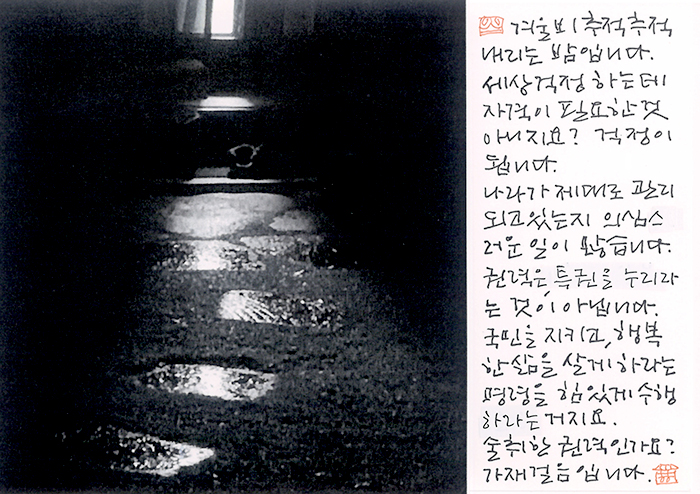 四 겨울비 추적추적
내리는 밤입니다.
세상걱정 하는데
자격이 필요한 것
아니지요? 걱정이
됩니다.
나라가 제대로 관리
되고있는지 의심스
러운 일이 많습니다.
권력은 특권을 누리라
는 것이 아닙니다.
국민을 지키고, 행복
한 삶을 살게 하라는
명령을 힘있게 수행
하라는 거지요.
술취한 권력인가요?
가재걸음입니다.